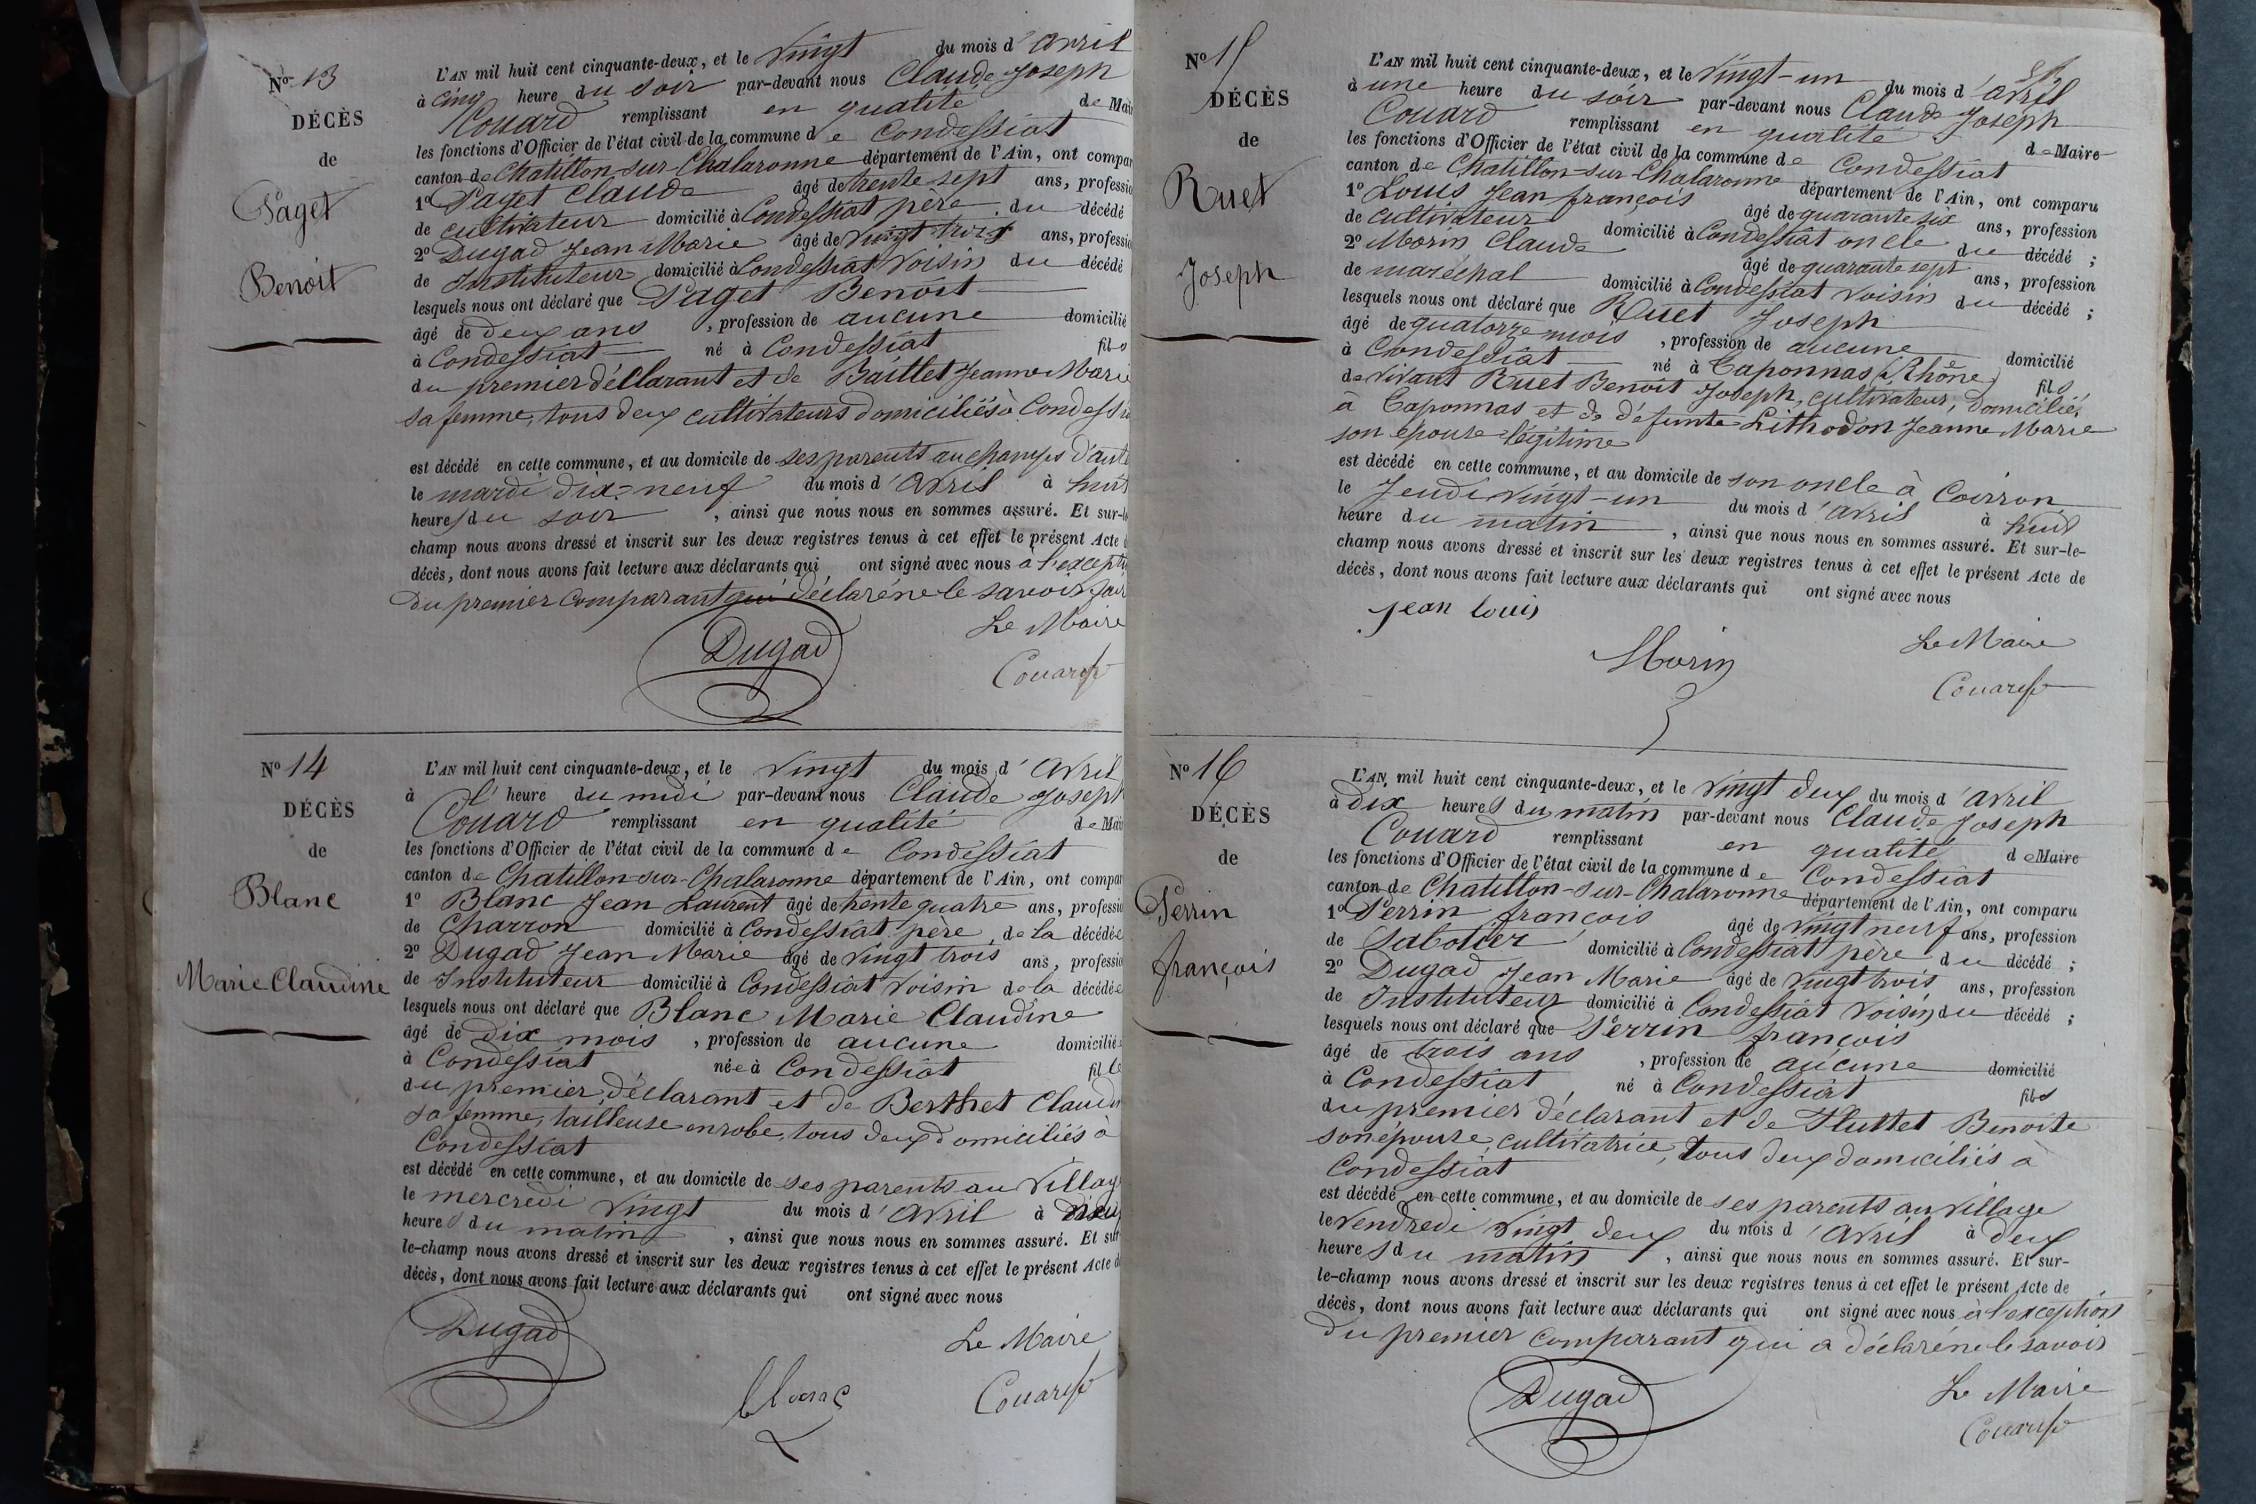 Nº 13
DÉCÈS
de
Paget
Benoit
L'AN mil huit cent cinquante-deux, et le vingt du mois d'avril
à cinq heure du soir par-devant nous Claude Joseph
Couard remplissant en qualité de Mair
les fonctions d'Officier de l'état civil de la commune de Condessiat
canton de Chatillon-sur-Chalaronne département de l'Ain, ont compar
1º Paget Claude âgé de trente sept ans, professio
de cultivateur domicilié à Condessiat père du décédé
2º Dugad Jean Marie âgé de vingt trois ans, professio
de Instituteur domicilié à Condessiat voisin du décédé
lesquels nous ont déclaré que Paget Benoit
âgé de deux ans , profession de aucune domicilié
à Condessiat né à Condessiat fils
du premier déclarant et de Baillet Jeanne Marie
sa femme, tous deux cultivateurs domiciliés à Condessia
est décédé en cette commune, et au domicile de ses parents au champs d'
le mardi dix-neuf du mois d'avril à huit
heures du soir , ainsi que nous nous en sommes assuré. Et sur-le
champ nous avons dressé et inscrit sur les deux registres tenus à cet effet le présent Acte d
décès, dont nous avons fait lecture aux déclarants qui ont signé avec nous à l'excepti
du premier comparant qui déclaré ne le savoir fair
Le Maire
Dugad
Couard
Nº 14
DÉCÈS
de
Blanc
Marie Claudine
L'AN mil huit cent cinquante-deux, et le vingt du mois d'avril
à l' heure du midi par-devant nous Claude Joseph
Couard remplissant en qualité de Mair
les fonctions d'Officier de l'état civil de la commune de Condessiat
canton de Chatillon-sur-Chalaronne département de l'Ain, ont compar
1º Blanc Jean Laurent âgé de trente quatre ans, professio
de Charron domicilié à Condessiat père de la décédée
2º Dugad Jean Marie âgé de vingt trois ans, professio
de Instituteur domicilié à Condessiat voisin de la décédée
lesquels nous ont déclaré que Blanc Marie Claudine
âgé de dix mois , profession de aucune domiciliée
à Condessiat née à Condessiat fille
du premier déclarant et de Berthet Claudin
sa femme, tailleuse en robe, tous deux domiciliés à
Condessiat
est décédé en cette commune, et au domicile de ses parents au village
le mercredi vingt du mois d'avril à
heures du matin , ainsi que nous nous en sommes assuré. Et sur
le-champ nous avons dressé et inscrit sur les deux registres tenus à cet effet le présent Acte d
décès, dont nous avons fait lecture aux déclarants qui ont signé avec nous
Le Maire
Dugad
Blanc
Couard
Nº 15
DÉCÈS
de
Ruet
Joseph
L'AN mil huit cent cinquante-deux, et le vingt-un du mois d'avril
à une heure du soir par-devant nous Claude Joseph
Couard remplissant en qualité de Maire
les fonctions d'Officier de l'état civil de la commune de Condessiat
canton de Chatillon-sur-Chalaronne département de l'Ain, ont comparu
1º Louis Jean françois âgé de quarante six ans, profession
de cultivateur domicilié à Condessiat oncle du décédé ;
2º Morin Claude âgé de quarante sept ans, profession
de maréchal domicilié à Condessiat voisin du décédé ;
lesquels nous ont déclaré que Ruet Joseph
âgé de quatorze mois , profession de aucune domicilié
à Condessiat né à Taponnas (Rhône) fils
de vivant Ruet Benoit Joseph, cultivateur, domicilié
à Taponnas et de défunte Lithodon Jeanne Marie
son épouse légitime
est décédé en cette commune, et au domicile de son oncle à Coirron
le Jeudi vingt-un du mois d'avril à huit
heure du matin , ainsi que nous nous en sommes assuré. Et sur-le-
champ nous avons dressé et inscrit sur les deux registres tenus à cet effet le présent Acte de
décès, dont nous avons fait lecture aux déclarants qui ont signé avec nous
jean louis
Morin
Le Maire
Couard
Nº 16
DÉCÈS
de
Perrin
françois
L'AN mil huit cent cinquante-deux, et le vingt deux du mois d'avril
à dix heures du matin par-devant nous Claude Joseph
Couard remplissant en qualité de Maire
les fonctions d'Officier de l'état civil de la commune de Condessiat
canton de Chatillon-sur-Chalaronne département de l'Ain, ont comparu
1º Perrin françois âgé de vingt neuf ans, profession
de Sabotier domicilié à Condessiat père du décédé ;
2º Dugad Jean Marie âgé de vingt trois ans, profession
de Instituteur domicilié à Condessiat voisin du décédé ;
lesquels nous ont déclaré que Perrin françois
âgé de trois ans , profession de aucune domicilié
à Condessiat né à Condessiat fils
du premier déclarant et de Pluttet Benoite
son épouse, cultivatrice, tous deux domiciliés à
Condessiat
est décédé en cette commune, et au domicile de ses parents au village
le vendredi vingt deux du mois d'avril à deux
heures du matin , ainsi que nous nous en sommes assuré. Et sur-
le-champ nous avons dressé et inscrit sur les deux registres tenus à cet effet le présent Acte de
décès, dont nous avons fait lecture aux déclarants qui ont signé avec nous à l'exception
du premier comparant qui a déclaré ne le savoir
Dugad
Le Maire
Couard